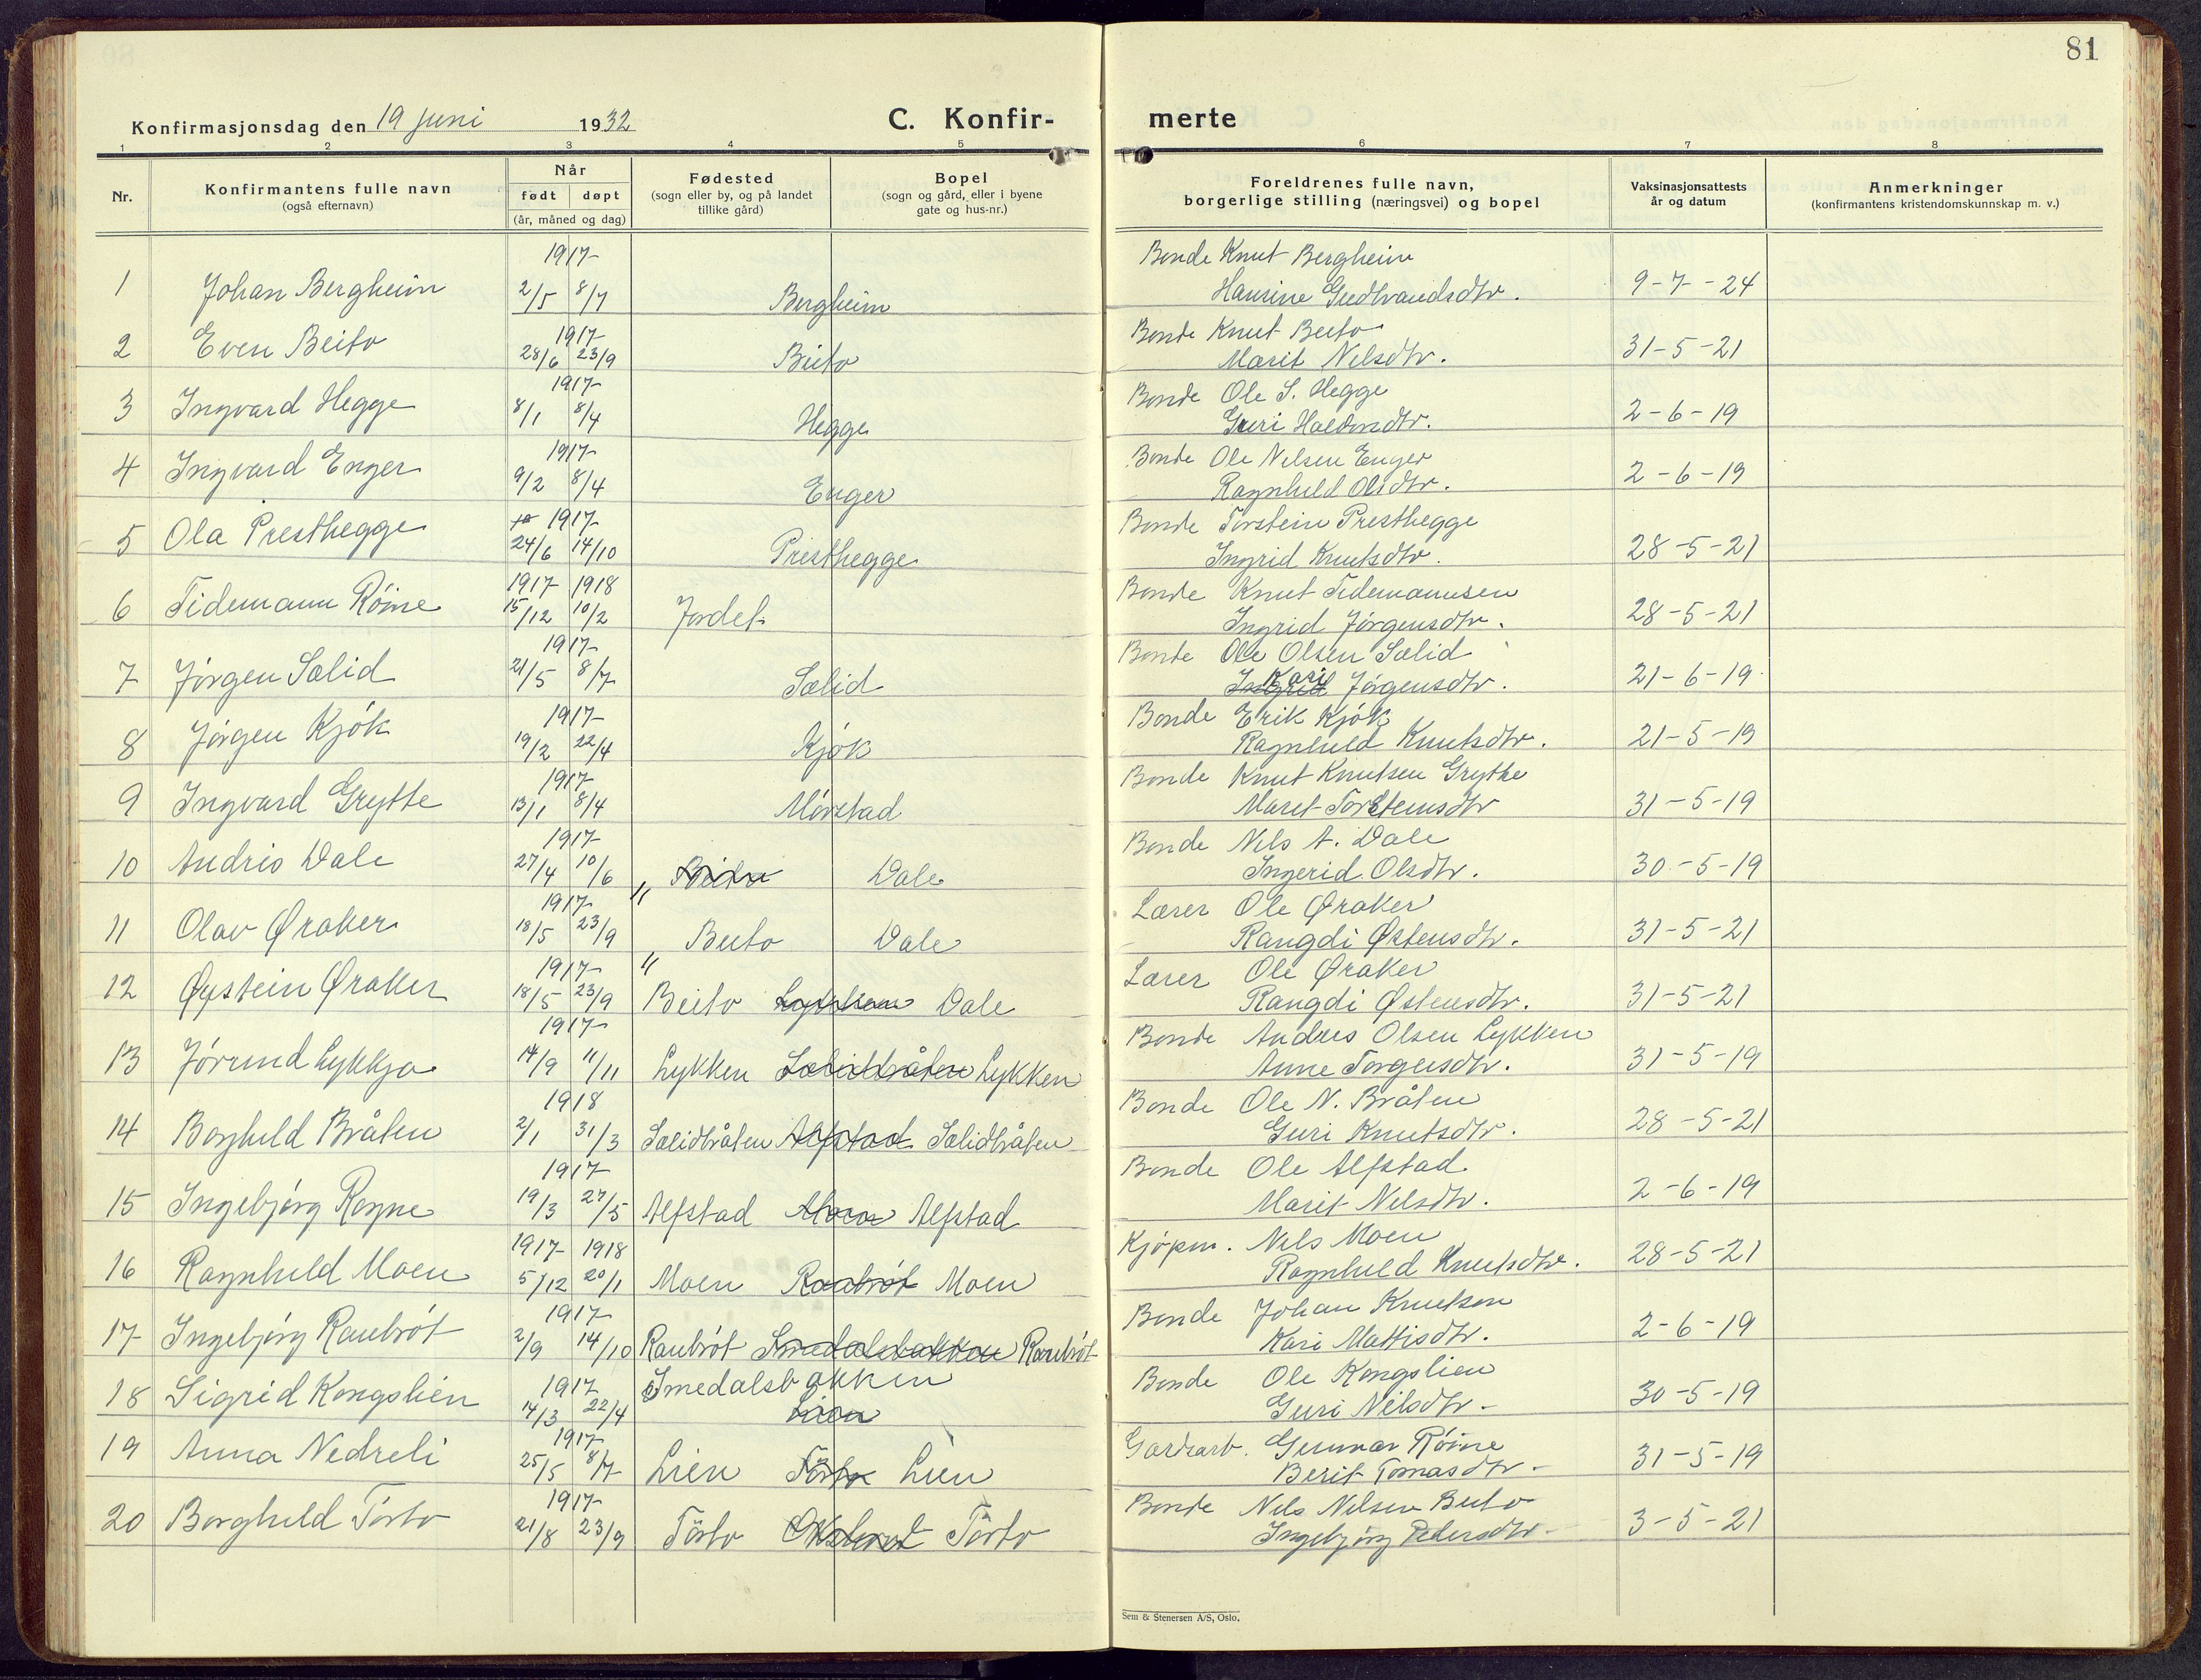 81
Konfirmasjonsdag den 19 juni 1932 C. Konfir- merte
1 2 3 4 5 6 7 8
Nr. Konfirmantens fulle navn (også efternavn) Når født døpt (år, måned og dag) Fødested (sogn eller by, og på landet tillike gård) Bopel (sogn og gård, eller i byene gate og hus-nr.) Foreldrenes fulle navn, borgerlige stilling (næringsvei) og bopel Vaksinasjonsattests år og datum Anmerkninger (konfirmantens kristendomskunnskap m. v.)
1917 Bonde Knut Bergheim
1 Johan Bergheim 2/5 8/7 Bergheim Hansine Gudbrandsdtr. 9-7-24
1917 Bonde Knut Beito
2 Even Beito 28/6 23/9 Beito Marit Nilsdtr. 31-5-21
1917 Bonde Ole S. Hegge
3 Ingvard Hegge 8/1 8/4 Hegge Guri 2-6-19
1917 Bonde Ole Nilsen Enger
4 Ingvard Enger 9/2 8/4 Enger Ragnhild Olsdtr. 2-6-19
1917 Bonde Torstein Presthegge
5 Ola Presthegge 24/6 14/10 Presthegge Ingrid Knutsdtr. 28-5-21
1917 1918 Bonde Knut Tidemannsen
6 Tidemann Röine 15/12 10/2 Jordet Ingrid Jörgensdtr. 28-5-21
1917 Bonde Ole Olsen Sælid
7 Jörgen Sælid 21/5 8/7 Sælid Ingrid Kari Jörgensdtr. 21-6-19
1917 Bonde Erik Kjök
8 Jörgen Kjök 19/2 22/4 Kjök Ragnhild Knutsdtr. 21-5-19
1917 Bonde Knut Knutsen Grythe
9 Ingvard Grytte 13/1 8/4 Mörstad Marit Torsteinsdtr 31-5-19
1917 Bonde Nils A. Dale
10 Andris Dale 27/4 10/6 Beito Dale Ingerid Olsdtr. 30-5-19
1917 " Lærer Ole Øraker
11 Olav Øraker 18/5 23/9 Beito Dale Rangdi Østensdtr. 31-5-21
1917 " Lærer Ole Øraker
12 Øystein Øraker 18/5 23/9 Beito Lykken Dale Rangdi Østensdtr. 31-5-21
1917 Bonde Andris Olsen Lykken
13 Jörund Lykkja 14/9 11/11 Lykken Sælidbråten Lykken Anne Torgersdtr. 31-5-19
1918 Bonde Ole N. Bråten
14 Borghild Bråten 2/1 31/3 Sælidbråten Alfstad Sælidbråten Guri Knutsdtr. 28-5-21
1917 Bonde Ole Alfstad
15 Ingebjörg Rogne 19/3 27/5 Alfstad Moen Alfstad Marit Nilsdtr. 2-6-19
1917 1918 Kjöpm. Nils Moen
16 Ragnhild Moen 5/12 20/1 Moen Raubröt Moen Ragnhild Knutsdtr. 28-5-21
1917 Bonde Johan Knutsen
17 Ingebjörg Raubröt 2/9 14/10 Raubröt Smedalsbakken Raubröt Kari Mattisdtr. 2-6-19
1917 Smedalsbakken Bonde Ole Kongslien
18 Sigrid Kongslien 14/3 22/4 Lien Guri Nilsdtr. 30-5-19
1917 Gardarb. Gunnar Röine
19 Anna Nedreli 25/5 8/7 Lien Törto Lien Berit Tomasdtr. 31-5-19
1917 Bonde Nils Nilsen Beito
20 Borghild Törto 21/8 23/9 Törto Törto Ingebjörg Pedersdtr. 3-5-21
Sem & Stenersen A/S, Oslo.